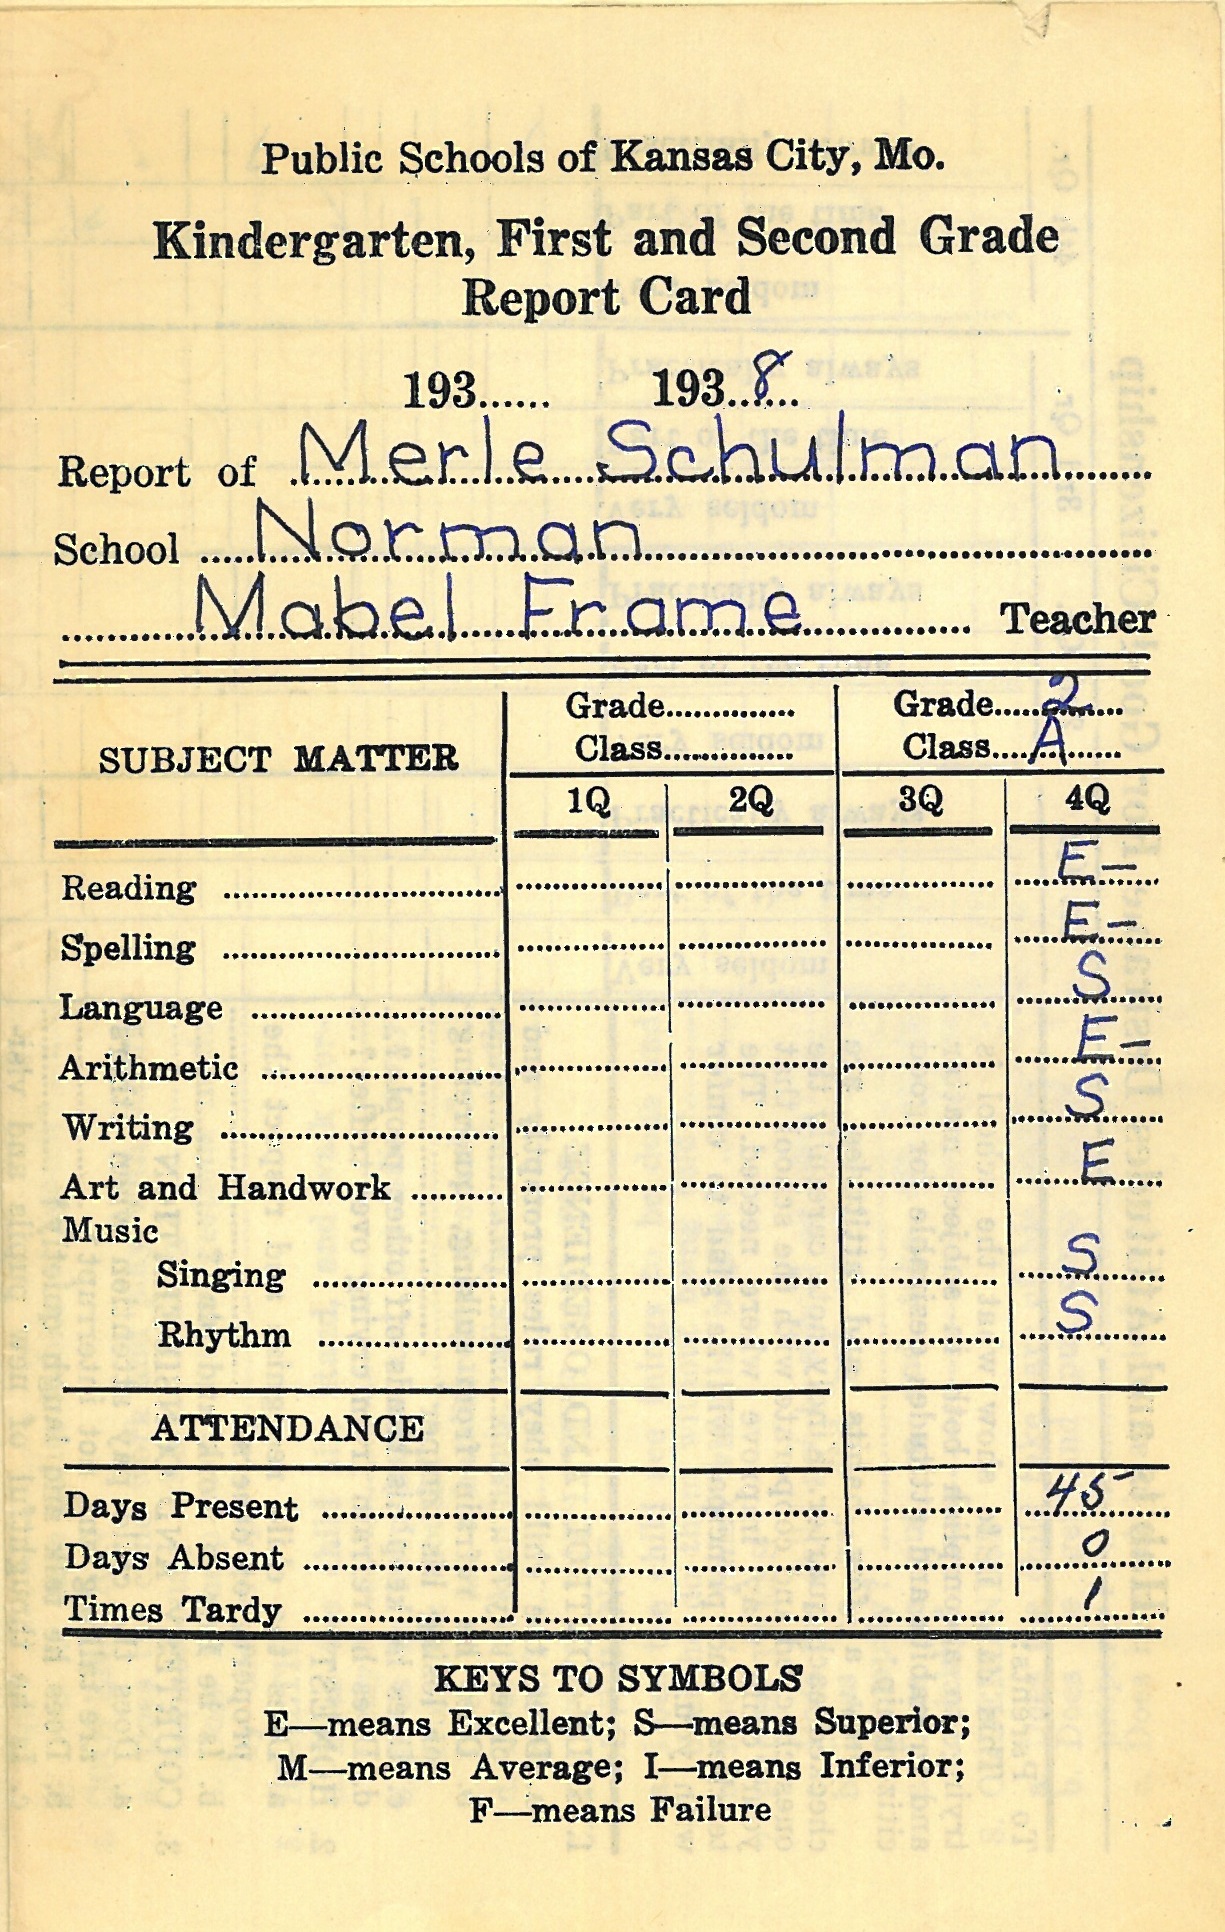 Public Schools of Kansas City, Mo.
Kindergarten, First and Second Grade
Report Card
193...... 193..8...
Report of Merle Schulman
School Norman
Mabel Frame Teacher
SUBJECT MATTER
Grade.............. Grade 2
Class.............. Class A
1Q 2Q 3Q 4Q
Reading E-
Spelling E-
Language S
Arithmetic E-
Writing S
Art and Handwork E
Music
Singing S
Rhythm S
ATTENDANCE
Days Present 45
Days Absent 0
Times Tardy 1
KEYS TO SYMBOLS
E—means Excellent; S—means Superior;
M—means Average; I—means Inferior;
F—means Failure